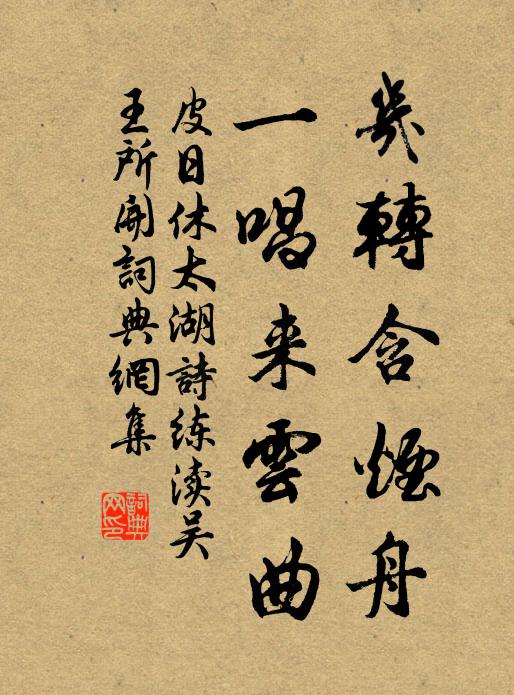 幾轉含煙舟
一唱来雲曲
皮日休太湖詩练渎吴
王所開詞典網集
詞典
网印